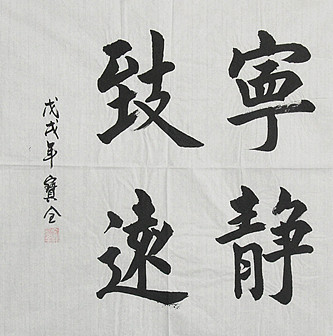 寧靜
致遠
戊戌年寶全